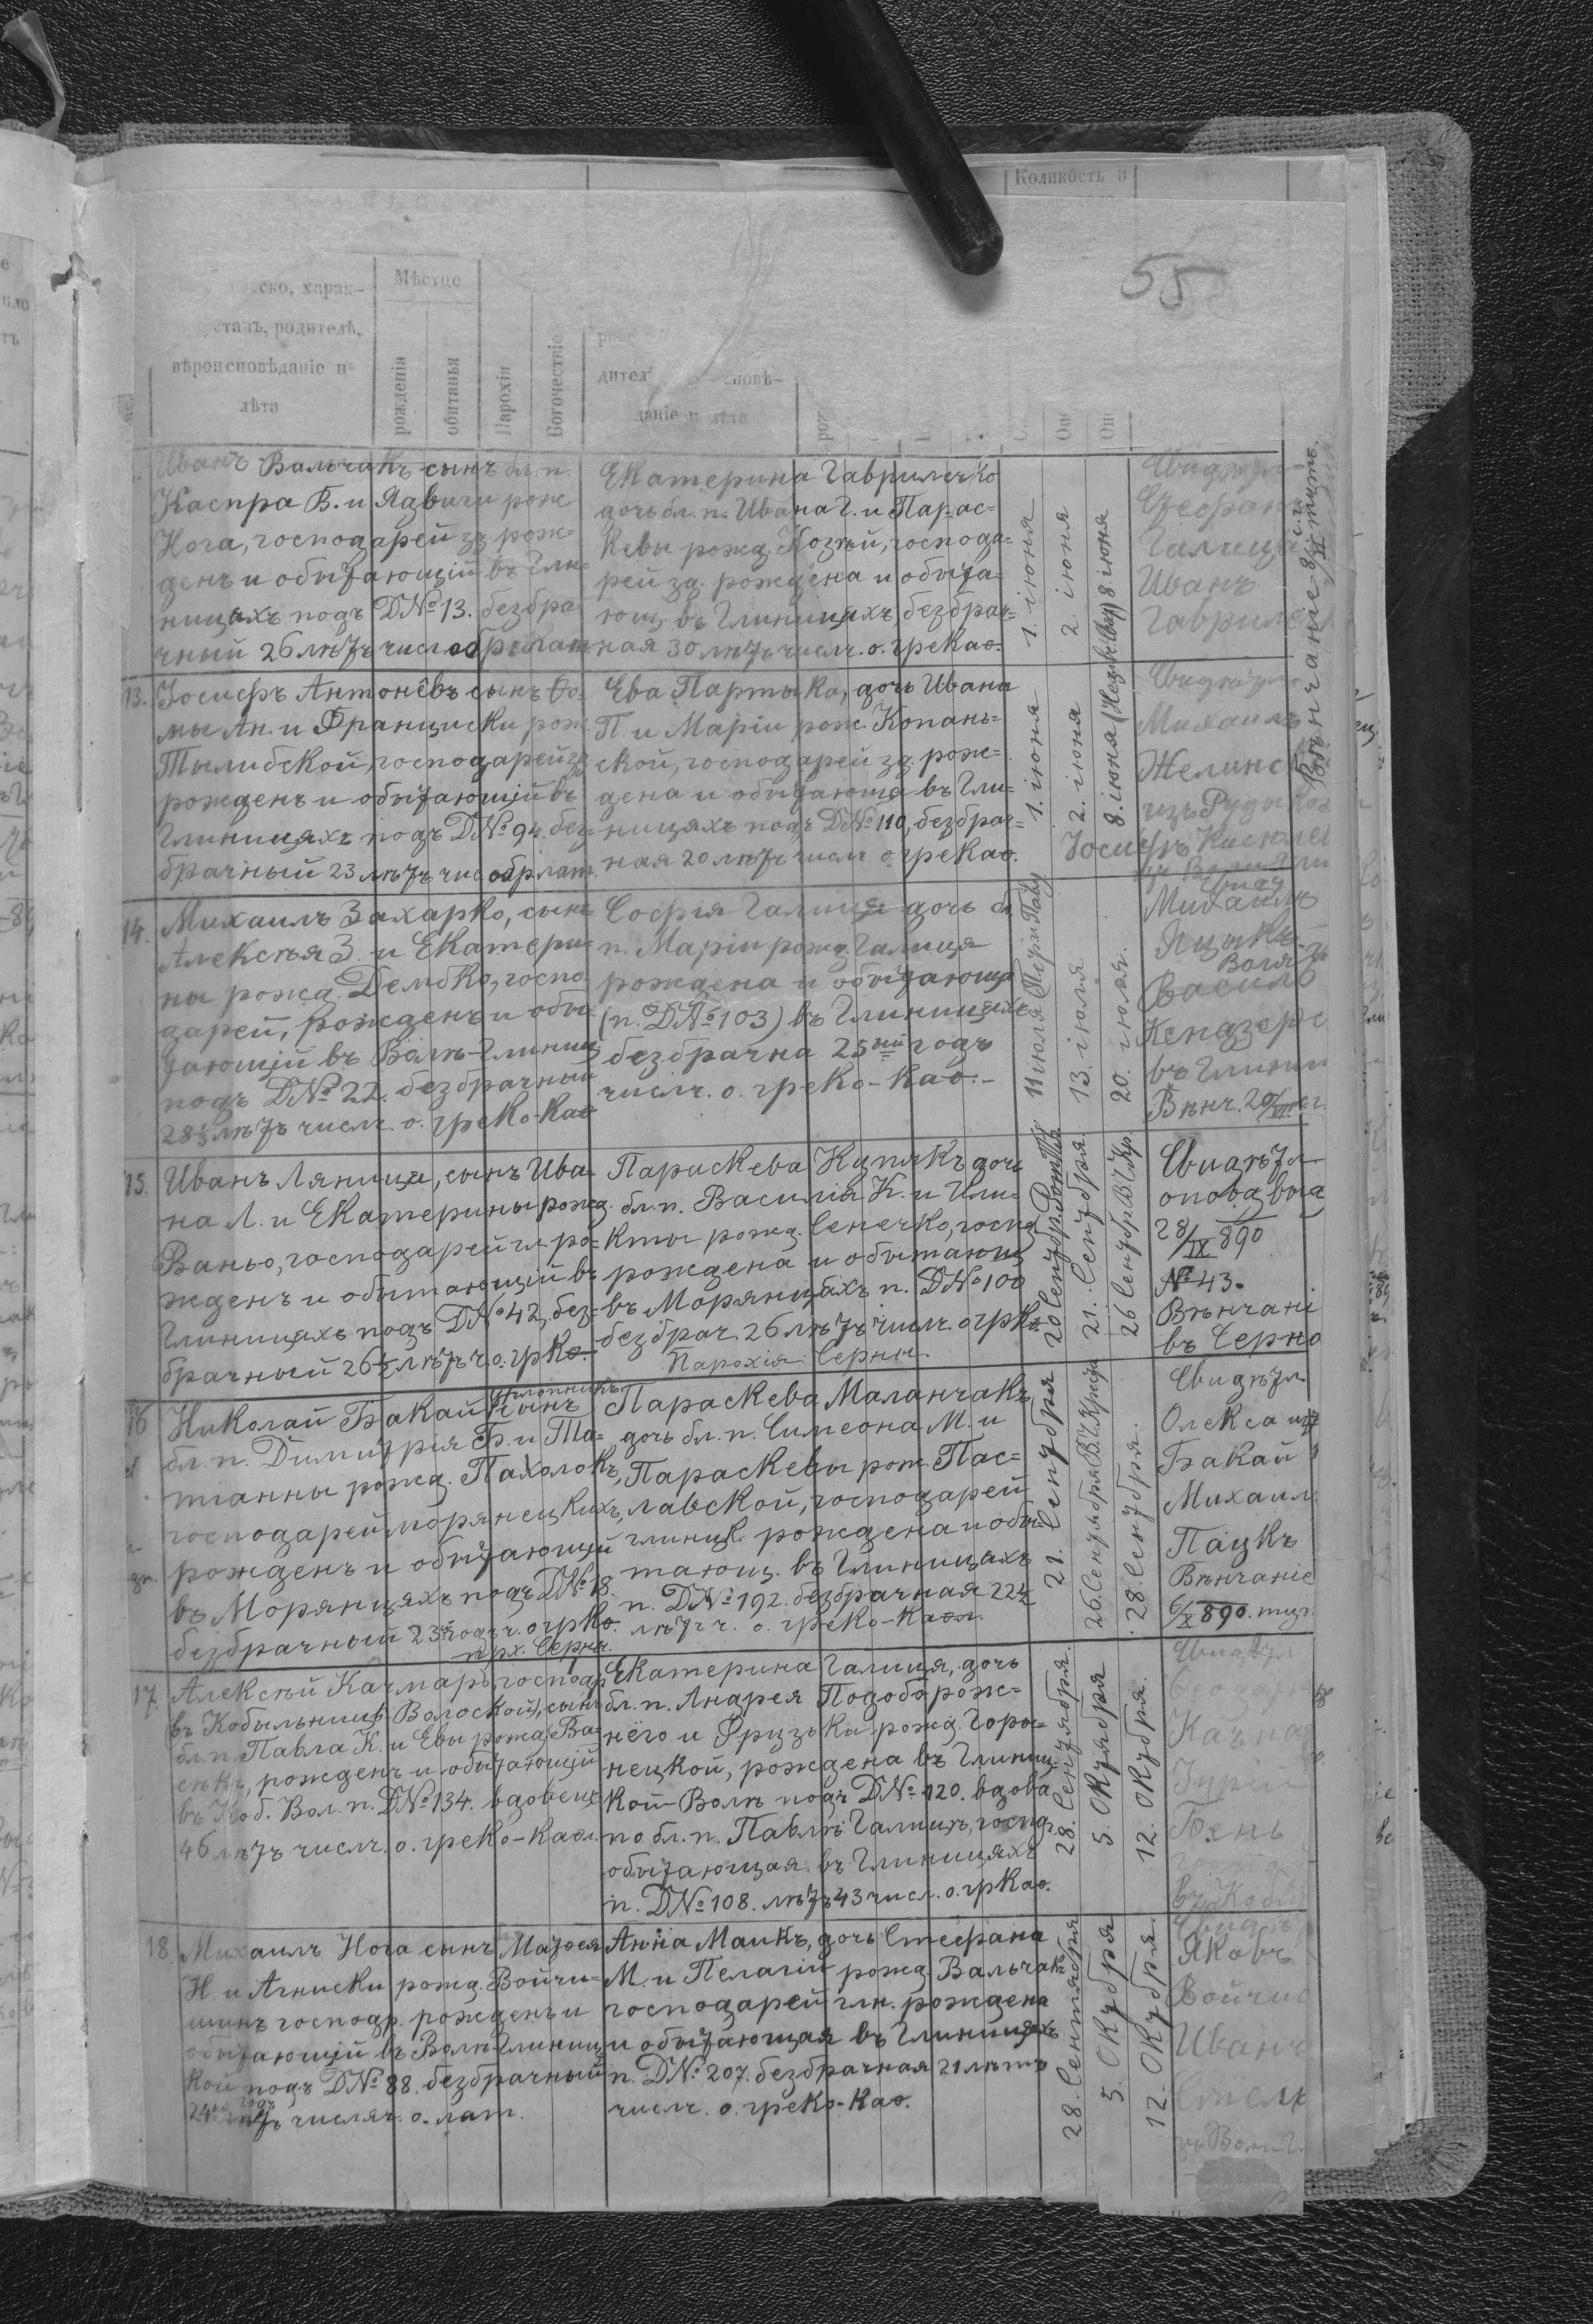 Количость и
55
ско, харак-
Мѣстце
станъ, родителѣ,
вѣроисповѣданіе и
лѣта
рожденія
обитанья
Парохія
Богочестіе
дител
повѣ-
даніе и лѣта
Иванъ Вальчикъ сынъ бл. п.
Каспра В. и Ядвиги рож
Нога, господарей зд. рож-
денъ и обытающій въ Гли-
ницяхъ подъ DNº 13. безбра-
чный 26 лѣтъ числ обр. лат.
Екатерина Гаврилечко
дочь бл. п. Ивана Г. и Парас-
кевы рожд. Козѣй, господа-
рей зд. рождена и обыта-
ющ. въ Глиницяхъ, безбрач-
ная 30 лѣтъ числ. о. греказ.
1. іюня
2. іюня
8. іюня
Стефан
Галиця
Иванъ
Гаврилеч
13. Іосифъ Антонёвъ сынъ Ѳо-
мы Ан. и Франциски рож.
Тылибской, господарей зд
рожденъ и обытающій въ
Глиницяхъ подъ DNº 94. без-
брачный 23 лѣтъ чис обр лат.
Ева Партыка, дочь Ивана
П. и Маріи рож. Копань-
ской, господарей зд. рож-
дена и обытающа въ Гли-
ницяхъ подъ DNº 110, безбрач-
ная 20 лѣтъ числ. о. греказ.
1. іюня
2. іюня
8. іюня
Михаилъ
Желинск
изъ Руды
Іосифъ
14. Михаилъ Захарко, сынъ
Алексѣя З. и Екатери-
ны рожд. Дембко, госпо-
дарей, рожденъ и обы-
тающій въ Волѣ-Глиниц
подъ DNº 22. безбрачный
28½ лѣтъ числ. о. греко-каѳ
Софія Галиця дочь бл
п. Маріи рожд. Галиця
рождена и обытающа
(п. DNº 103) въ Глиницяхъ
безбрачна 25ый годъ
числ. о. греко-каѳ.-
11 іюля
13. іюля
20. іюля.
Михаилъ
Яцыкъ
Воля
Василь
Кендзерс
въ Глини
Вѣнч. 20/VII
15. Иванъ Ляниця, сынъ Ива-
на Л. и Екатерины рожд.
Ваньо, господарей гл. ро-
жденъ и обытающій въ
Глиницяхъ подъ DNº 42, без-
брачный 26½ лѣтъ ч. о. грКѳ.
Парискева Купякъ дочь
бл. п. Василія К. и Или-
кты рожд. Сенечко, госпд
рождена и обытающ
въ Морянцяхъ п. DNº 100
безбрач. 26 лѣтъ числ. о грКѳ
Парохія: Серны.
20 Сентбр.
21. Сентбря.
26 Сентбр.
Свидѣтл
опов. выд
28/IX 890
Nº 43.
Вѣнчані
въ Черно
16 Николай Бакай сынъ
бл. п. Димитрія Б. и Та-
тіанны рожд. Пахолокъ,
господарей морянецкихъ,
рожденъ и обытающій
въ Морянцяхъ подъ DNº 18.
безбрачный 23ій годъ ч. о грКѳ.
прх. Серны.
Параскева Маланчакъ,
дочь бл. п. Симеона М. и
Параскевы рож. Пас-
лавской, господарей
глиниц. рождена и обы-
тающ. въ Глиницяхъ
п. DNº 192. безбрачная 22½
лѣтъ ч. о. греко-каѳл.
21. Сентбря
26. Сентября
28. Сентбря.
Свидѣтл
Олекса
Бакай
Михаил
Пацкъ
Вѣнчаніе
6/X 890.
17. Алексѣй Качмаръ, господр
въ Кобыльници Волоской), сынъ
бл. п. Павла К. и Евы рожд. Ва-
сѣкъ, рожденъ и обытающій
въ Коб. Вол. п. DNº 134. вдовецъ
46 лѣтъ числ. о. греко-каѳл.
Екатерина Галиця, дочь
бл. п. Андрея Подобо рож-
нёго и Фрузьки рожд. Горы-
нецкой, рождена въ Глиниц-
кой-Волѣ подъ DNº 120. вдова
по бл. п. Павлѣ Галиця, господ.
обытающая въ Глиницяхъ
п. DNº 108. лѣтъ 43 числ. о. грКаѳ.
28. Сентября.
5. Октября
12. Октбря.
Качма
Гурій
Бень
въ Кобы
18. Михаилъ Нога сынъ Матѳея
Н. и Агниски рожд. Войчи-
шинъ господр. рожденъ и
обытающій въ Волѣ-Глиниц-
кой подъ DNº 88. безбрачный
числяч. о. лат.
Анна Маикъ, дочь Стефана
М. и Пелагіи рожд. Вальчакъ
господарей глн. рождена
и обытающая въ Глиницяхъ
п. DNº 207. безбрачная 21 лѣтъ
числ. о. греко-каѳ.
28. Сентября
5. Октбря
12. Октбря.
Свидѣ
Яковъ
Войчи
Иванъ
Стель